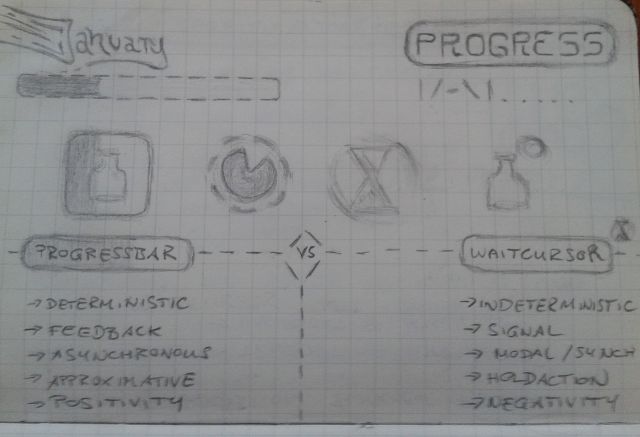 January
PROGRESS
|/-\|......
PROGRESSBAR
VS
WAITCURSOR
→ DETERMINISTIC
→ FEEDBACK
→ ASYNCHRONOUS
→ APPROXIMATIVE
→ POSITIVITY
→ INDETERMINISTIC
→ SIGNAL
→ MODAL/SYNCH
→ HOLDACTION
→ NEGATIVITY